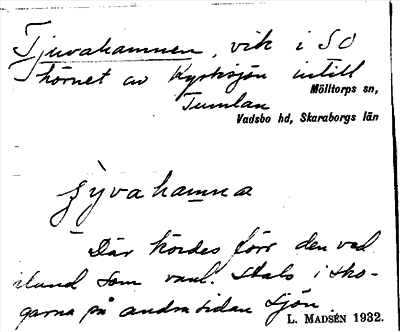 Tjuvahamnen, vik i SO
hörnet av Kyrksjön intill
Mölltorps sn,
Tumlan
Vadsbo hd, Skaraborgs län
ȷyvahamna
Där kördes förr den ved
iland som vanl. stals i sko-
garna på andra sidan sjön.
L. MADSÉN 1932.